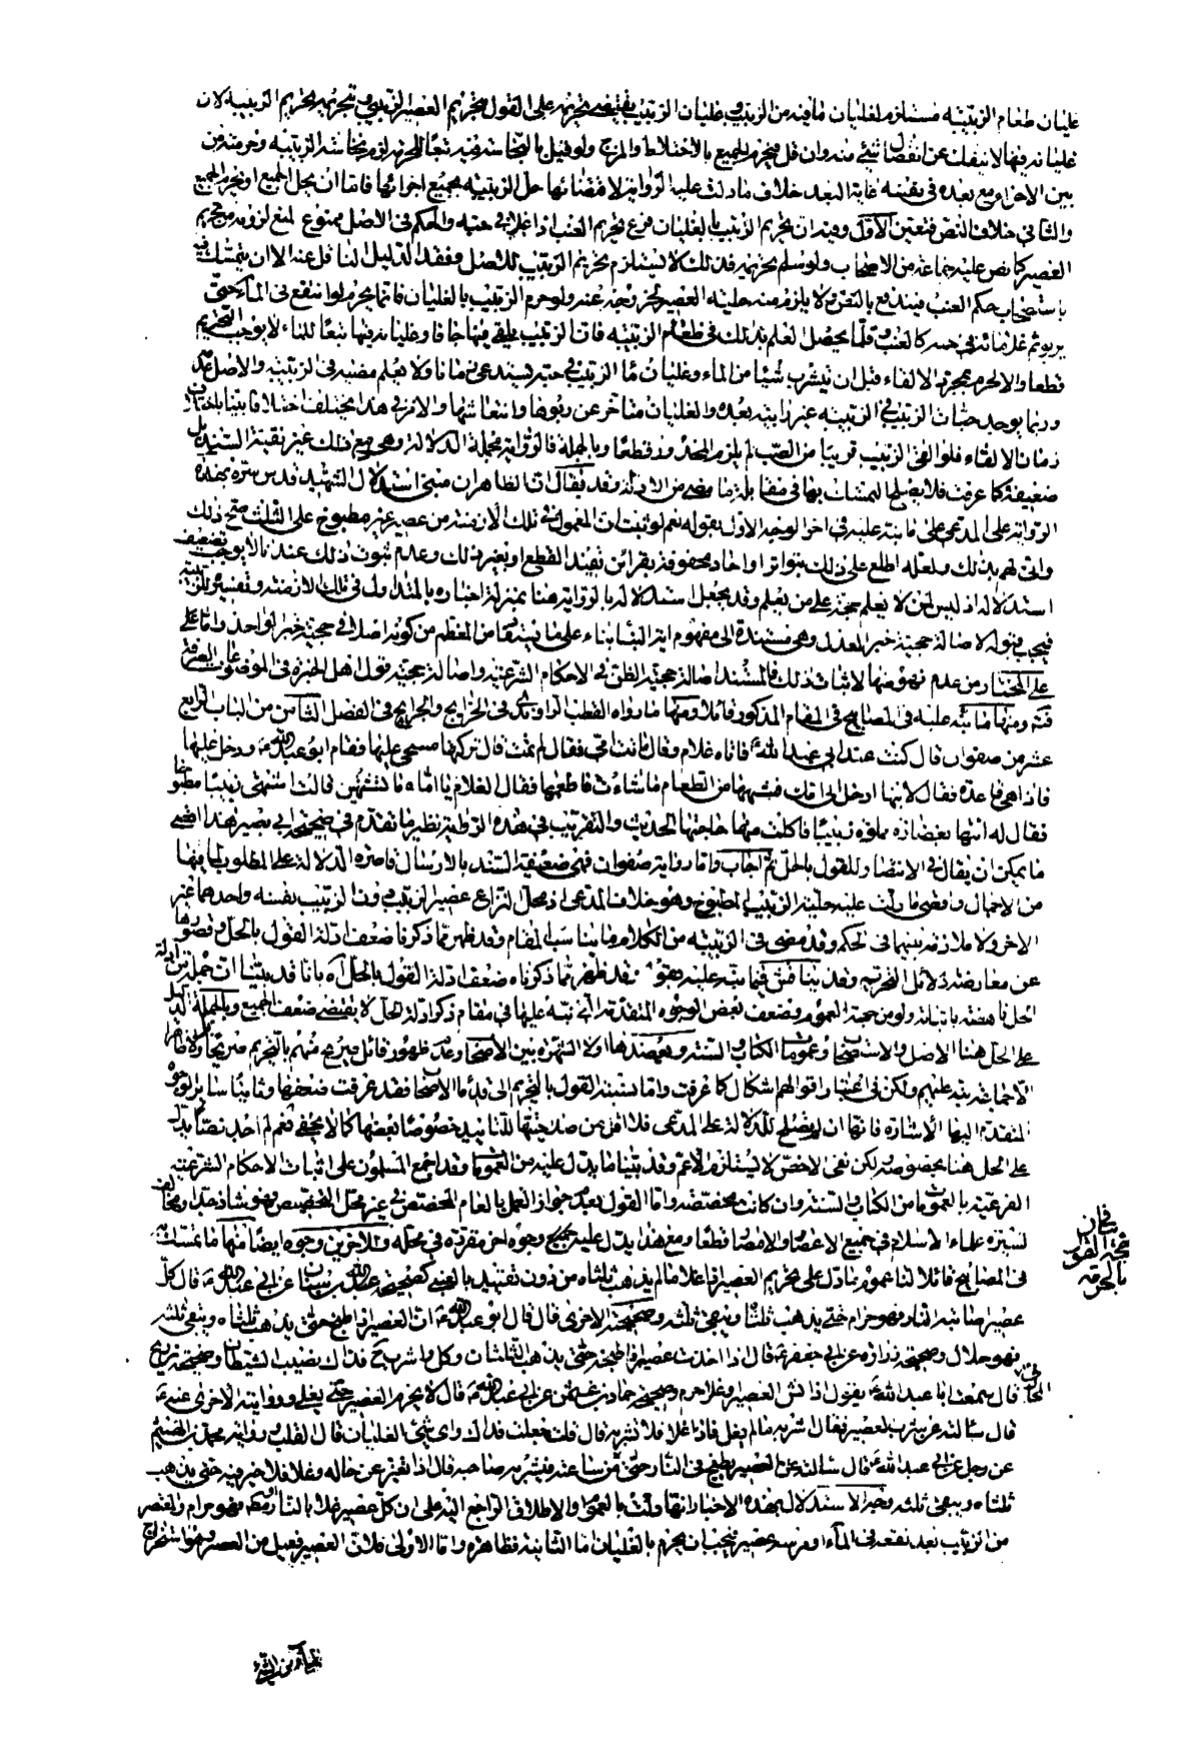 غليان طعام الزبيبة مستلزم لغليان ما فيه من الزبيب وغليان الزبيب يقتضي تحريمه على القول بتحريم العصير الزبيبي وتحريمه تحريم الزبيبة لان
غليانه فيها لا ينفك عن انفصال شيء منه وان قل فيحرم الجميع بالاختلاط والمزج ولو قيل بالنجاسة فيه تبعا للحرمة لزم نجاسة الزبيبة وحرمته من
بين الاجزاء مع بعده في نفسه غاية البعد خلاف ما دلت عليه الرواية لاقتضائها حل الزبيبة بجميع اجزائها فاما ان يحل الجميع او يحرم الجميع
والثاني خلاف النص فتعين الاول وفيه ان تحريم الزبيب بالغليان فرع تحريم العنب اذا غلا في حبه والحكم في الاصل ممنوع لمنع لزومه تحريم
العصير كما نص عليه جماعة من الاصحاب ولو سلم تحريمه فذلك لا يستلزم تحريم الزبيب للاصل وفقد الدليل الناقل عنه الا ان يتمسك فيه
باستصحاب حكم العنب فيندفع بالنص ولا يلزم منه حلية العصير لخروجه عنه ولو حرم الزبيب بالغليان فانما يحرم لو انتفع في الماء حتى
يربو ثم غلا مائه في حبه كالعنب وقلما يحصل لعلم بذلك في طعام الزبيبة فان الزبيب يلقى فيها جافا وغليانه فيها تبعا للماء لا يوجب التحريم
قطعا والا لحرم بمجرد الالقاء قبل ان يشرب شيئا من الماء وغليان ماء الزبيب في حبه يستدعي زمانا ولا يعلم مضيه في الزبيبة والاصل عدمه
وربما يوجد حبات الزبيب في الزبيبة غير رابية بعد والغليان متأخر عن ربوها وانتفاخها والامر في هذا يختلف اختلافا بينا باختلاف
زمان الالقاء فلو القي الزبيب قريبا من الصب لم يلزم المحذور قطعا وبالجملة فالرواية مجملة الدلالة وهي مع ذلك غير نقية السند بل
ضعيفة كما عرفت فلا يصلح التمسك بها في مقابلة ما مضى من الادلة وقد يقال ان الظاهر ان مبنى استدلال الشهيد قدس سره بهذه
الرواية على المدعى على ما نبه عليه في اخر الوجه الاول بقوله نعم لو ثبت ان المعمول في تلك الازمنة من عصير غير مطبوخ على الثلث صح ذلك
وانى لهم بذلك ولعله اطلع على ذلك بتواتر او احاد محفوفة بقرائن تفيد القطع او بغير ذلك وعدم ثبوت ذلك عندنا لا يوجب تضعيف
استدلاله اذ ليس لمن لا يعلم حجة على من يعلم وقد يجعل استدلاله بالرواية هنا بمنزلة اخباره بالمتداول في تلك الازمنة وتفسيره للزبيبة
فيجب قبوله لاصالة حجية خبر العدل وهي مستندة الى مفهوم اية النبأ بناء على ما يستفاد من المعظم من كونه اصلا في حجية خبر الواحد واما على
على المختار من عدم نهوضها لاثبات ذلك فالمستند اصالة حجية الظن في الاحكام الشرعية واصالة حجية قول اهل الخبرة في الموضوعات الصرفة
فتم ومنها ما نبه عليه في المصابيح في المقام المذكور قائلا ومنها ما رواه القطب الراوندي في الخرايج والجرايح في الفصل الثامن من الباب الرابع
عشر من صفوان قال كنت عند ابي عبد الله ع فاتاه غلام وقال ماتت امي فقال لم تمت قال تركتها مسجى عليها فقام ابو عبد الله ع ودخل عليها
فاذا هي قاعدة فقال لابنها ادخل الى امك فشهها من الطعام ما شاءت فاطعمها فقال الغلام يا اماه ما تشتهين قالت اشتهي زبيبا مطبوخا
فقال له ائتها بغضارة مملوة زبيبا فاكلت منها حاجتها الحديث والتقريب في هذه الرواية نظير ما تقدم في صحيحة ابي بصير هذا اقصى
ما يمكن ان يقال في الانتصار للقول بالحل ثم اجاب واما رواية صفوان فهي ضعيفة السند بالارسال قاصرة الدلالة على المطلوب لما فيها
من الاجمال واقصى ما دلت عليه حلية الزبيب المطبوخ وهو خلاف المدعى اذ محل النزاع عصير الزبيب دون الزبيب بنفسه واحدهما غير
الاخر ولا ملازمة بينهما في الحكم وقد مضى في الزبيبة من الكلام ما يناسب المقام وقد ظهر مما ذكرنا ضعف ادلة القول بالحل وقصورها
عن معارضة دلائل التحريم وقد يناقش فيما نبه عليه بقوله وقد ظهر مما ذكرناه ضعف ادلة القول بالحل اه بانا قد بينا ان جملة من ادلة
الحل ناهضة باثباته ولو من جهة العموم وضعف بعض الوجوه المتقدمة التي نبه عليها في مقام ذكر ادلة الحل لا يقتضي ضعف الجميع وبالجملة الدليل
على الحل هنا الاصل والاستصحاب وعمومات الكتاب والسنة ويعضدها اولا الشهرة بين الاصحاب وعدم ظهور قائل صريح منهم بالتحريم صريحا وظاهرا
الا جماعة يسيرة عليهم ولكن في اعتبار اقوالهم اشكال كما عرفت واما نسبة القول بالتحريم الى قدماء الاصحاب فقد عرفت ضعفها وثانيا ساير الوجوه
المتقدمة اليها الاشارة فانها ان لم يصلح للدلالة على المدعى فلا اقل من صلاحيتها للتأييد خصوصا بعضها كما لا يخفى نعم لم اجد نصا يدل
على الحل هنا بخصوصه لكن نفي الاخص لا يستلزم الاعم وقد بينا ما يدل عليه من العمومات وقد اجمع المسلمون على اثبات الاحكام الشرعية
الفرعية بالعمومات من الكتاب والسنة وان كانت مخصصة واما القول بعدم جواز العمل بالعام المخصص في غير محل التخصيص فهو شاذ جدا ومخالف
لسيرة علماء الاسلام في جميع الاعصار والامصار قطعا ومع هذا يدل عليه حجج وجوه اخر مقررة في محله وللاخرين وجوه ايضا منها ما تمسك به
في المصابيح قائلا لنا عموم ما دل على تحريم العصير اذا غلا ما لم يذهب ثلثاه من دون تقييد بالعنب كصحيحة عبد الله بن سنان عن ابي عبد الله ع قال كل
عصير اصابته النار فهو حرام حتى يذهب ثلثاه ويبقى ثلثه وصحيحته الاخرى قال قال ابو عبد الله ع ان العصير اذا طبخ حتى يذهب ثلثاه ويبقى ثلثه
فهو حلال وصحيحة زرارة عن ابي جعفر ع قال اذا اخذت عصيرا فاطبخه حتى يذهب الثلثان وكل واشرب ح فذاك نصيب الشيطان وصحيحة ذريح
المحاربي قال سمعت ابا عبد الله ع يقول اذا نش العصير او غلا حرم وصحيحة حماد بن عثمن عن ابي عبد الله ع قال لا يحرم العصير حتى يغلي وروايته الاخرى عنه ع
قال سالته عن شرب العصير فقال اشربه ما لم يغل فاذا غلا فلا تشربه قال قلت جعلت فداك واي شيء الغليان قال القلب ورواية محمد بن الهيثم
عن رجل عن ابي عبد الله ع قال سالته عن العصير يطبخ في النار حتى يغلي من ساعته فيشربه صاحبه قال اذا تغير عن حاله وغلا فلا خير فيه حتى يذهب
ثلثاه ويبقى ثلثه وجه الاستدلال بهذه الاخبار انها دلت بالعموم والاطلاق الراجع اليه على ان كل عصير غلا بالنار فهو حرام والعصير
من الزبيب بعد نقعه في الماء ومرسه عصير فيجب ان يحرم بالغليان اما الثانية فظاهرة واما الاولى فلان العصير فعيل من العصر وهو استخراج